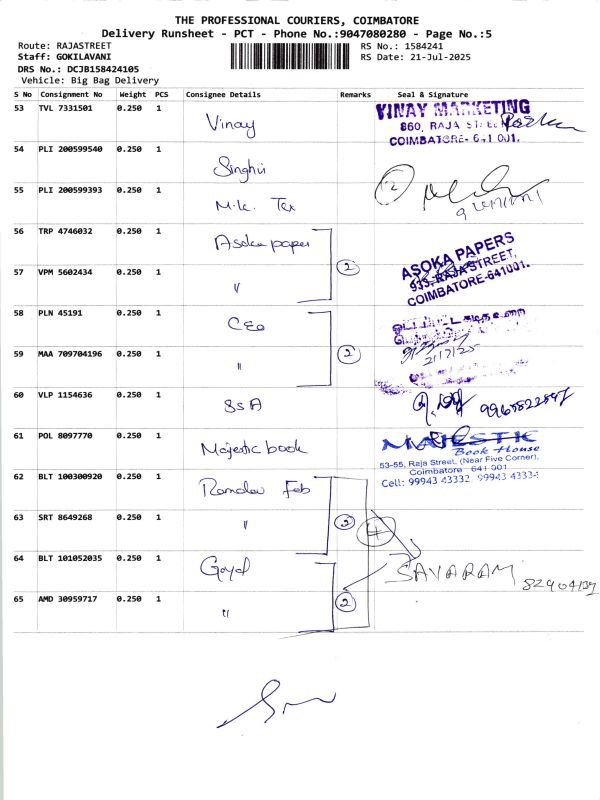 THE PROFESSIONAL COURIERS, COIMBATORE
Delivery Runsheet - PCT - Phone No.:9047080280 - Page No.:5
Route: RAJASTREET
RS No.: 1584241
Staff: GOKILAVANI
RS Date: 21-Jul-2025
DRS No.: DCJB158424105
Vehicle: Big Bag Delivery
S No Consignment No Weight PCS Consignee Details Remarks Seal & Signature
53 TVL 7331501 0.250 1 Vinay
VINAY MARKETING
860, RAJA STREET
COIMBATORE- 641 001.
54 PLI 200599540 0.250 1 Singhvi
2
55 PLI 200599393 0.250 1 M.K. Tex
56 TRP 4746032 0.250 1 Asoka paper
2
ASOKA PAPERS
935, RAJA STREET,
COIMBATORE-641001.
57 VPM 5602434 0.250 1 "
58 PLN 45191 0.250 1 CEO
2
21/7/25
59 MAA 709704196 0.250 1 "
60 VLP 1154636 0.250 1 SSA
61 POL 8097770 0.250 1 Majestic book
MAJESTIC
Book House
53-55, Raja Street, (Near Five Corner),
Coimbatore - 641 001
Cell: 99943 43332, 99943 43334
62 BLT 100300920 0.250 1 Ramdev Feb
63 SRT 8649268 0.250 1 "
2
4
64 BLT 101052035 0.250 1 Goyal
SAVARAM
65 AMD 30959717 0.250 1 "
2